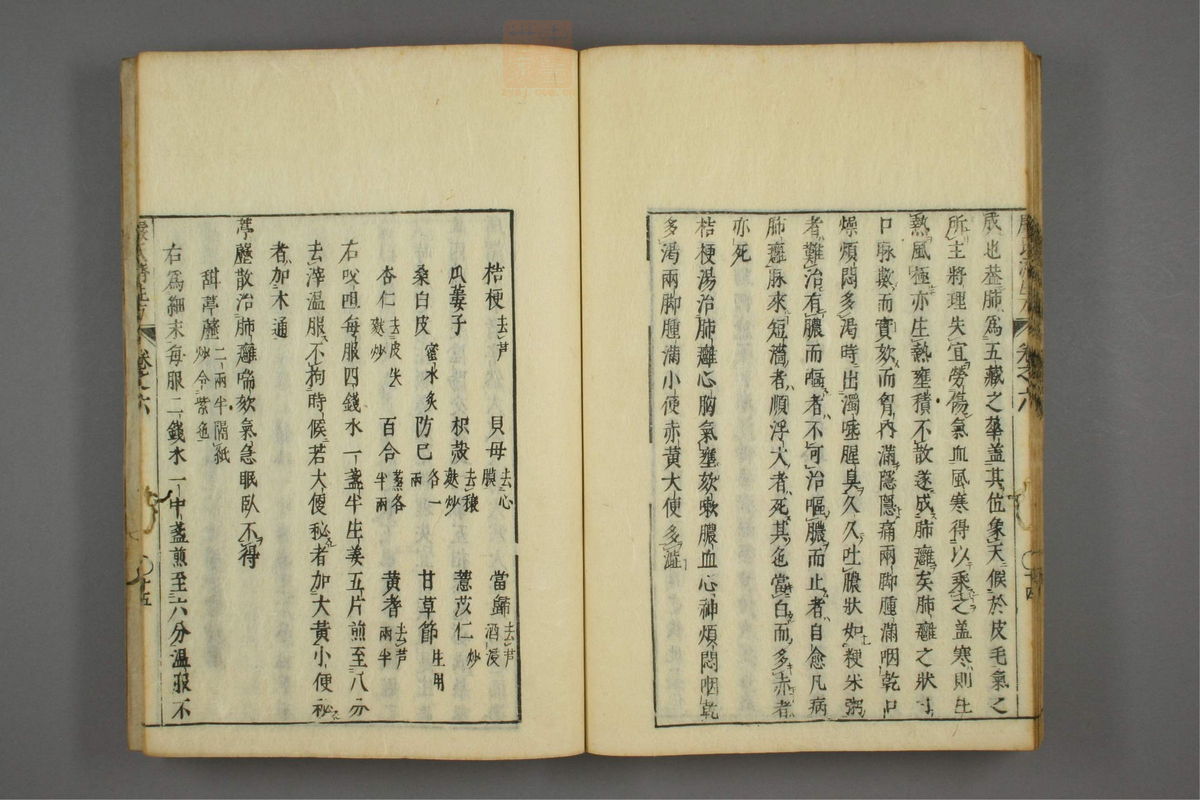 成也蓋肺爲五藏之華蓋其位象天候於皮毛氣之
所主將理失宜勞傷氣血風寒得以乘之盖寒則生
熱風極亦生熱壅積不散遂成肺癰矣肺癰之狀寸
口脉數而實欬而胷內滿隱隱痛兩脚腫滿咽乾口
燥煩悶多渴時出濁唾腥臭久久吐膿狀如粳米粥
者難治有膿而嘔者不可治嘔膿而止者自愈凡病
肺癰脉來短濇者順浮大者死其色當白而多赤者
亦死
桔梗湯治肺癰心胸氣壅欬嗽膿血心神煩悶咽乾
多渴兩脚腫滿小便赤黃大便多澁
卷之六
十四
桔梗去芦 貝母去心膜 當歸去芦酒浸
瓜蔞子 枳殼去穰麩炒 薏苡仁炒
桑白皮蜜水炙 防已各一兩 甘草節生用
杏仁去皮尖麩炒 百合蒸各半兩 黃耆去芦兩半
右㕮咀每服四錢水一盞半生姜五片煎至八分
去滓溫服不拘時候若大便秘者加大黃小便秘
者加木通
葶藶散治肺癰喘欬氣急眠臥不得
甜葶藶二兩半隔紙炒令紫色
右爲細末每服二錢水一中盞煎至六分溫服不
卷之六
十五